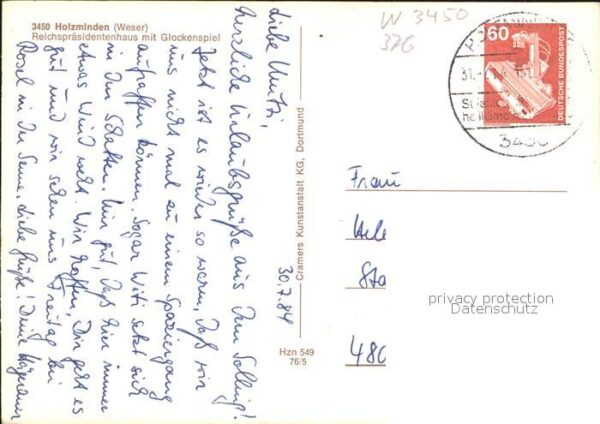 3450 Holzminden (Weser)
Reichspräsidentenhaus mit Glockenspiel
W 3450
376
60
DEUTSCHE BUNDESPOST
31.-7.
3450
30.7.84
Liebe Mutti,
herzliche Urlaubsgrüße aus dem Solling!
Jetzt ist es wieder so warm, daß wir
uns nicht mal zu einem Spaziergang
aufraffen können. Sogar Witi setzt sich
in den Schatten. Nur gut, daß hier immer
etwas Wind weht. Wir hoffen, Dir geht es
gut und wir sehen uns Freitag bei
Rosel in der Senne. Liebe Grüße! Deine
Cramers Kunstanstalt KG, Dortmund
Hzn 549
76/5
Frau
Hele
Sta
480
privacy protection
Datenschutz